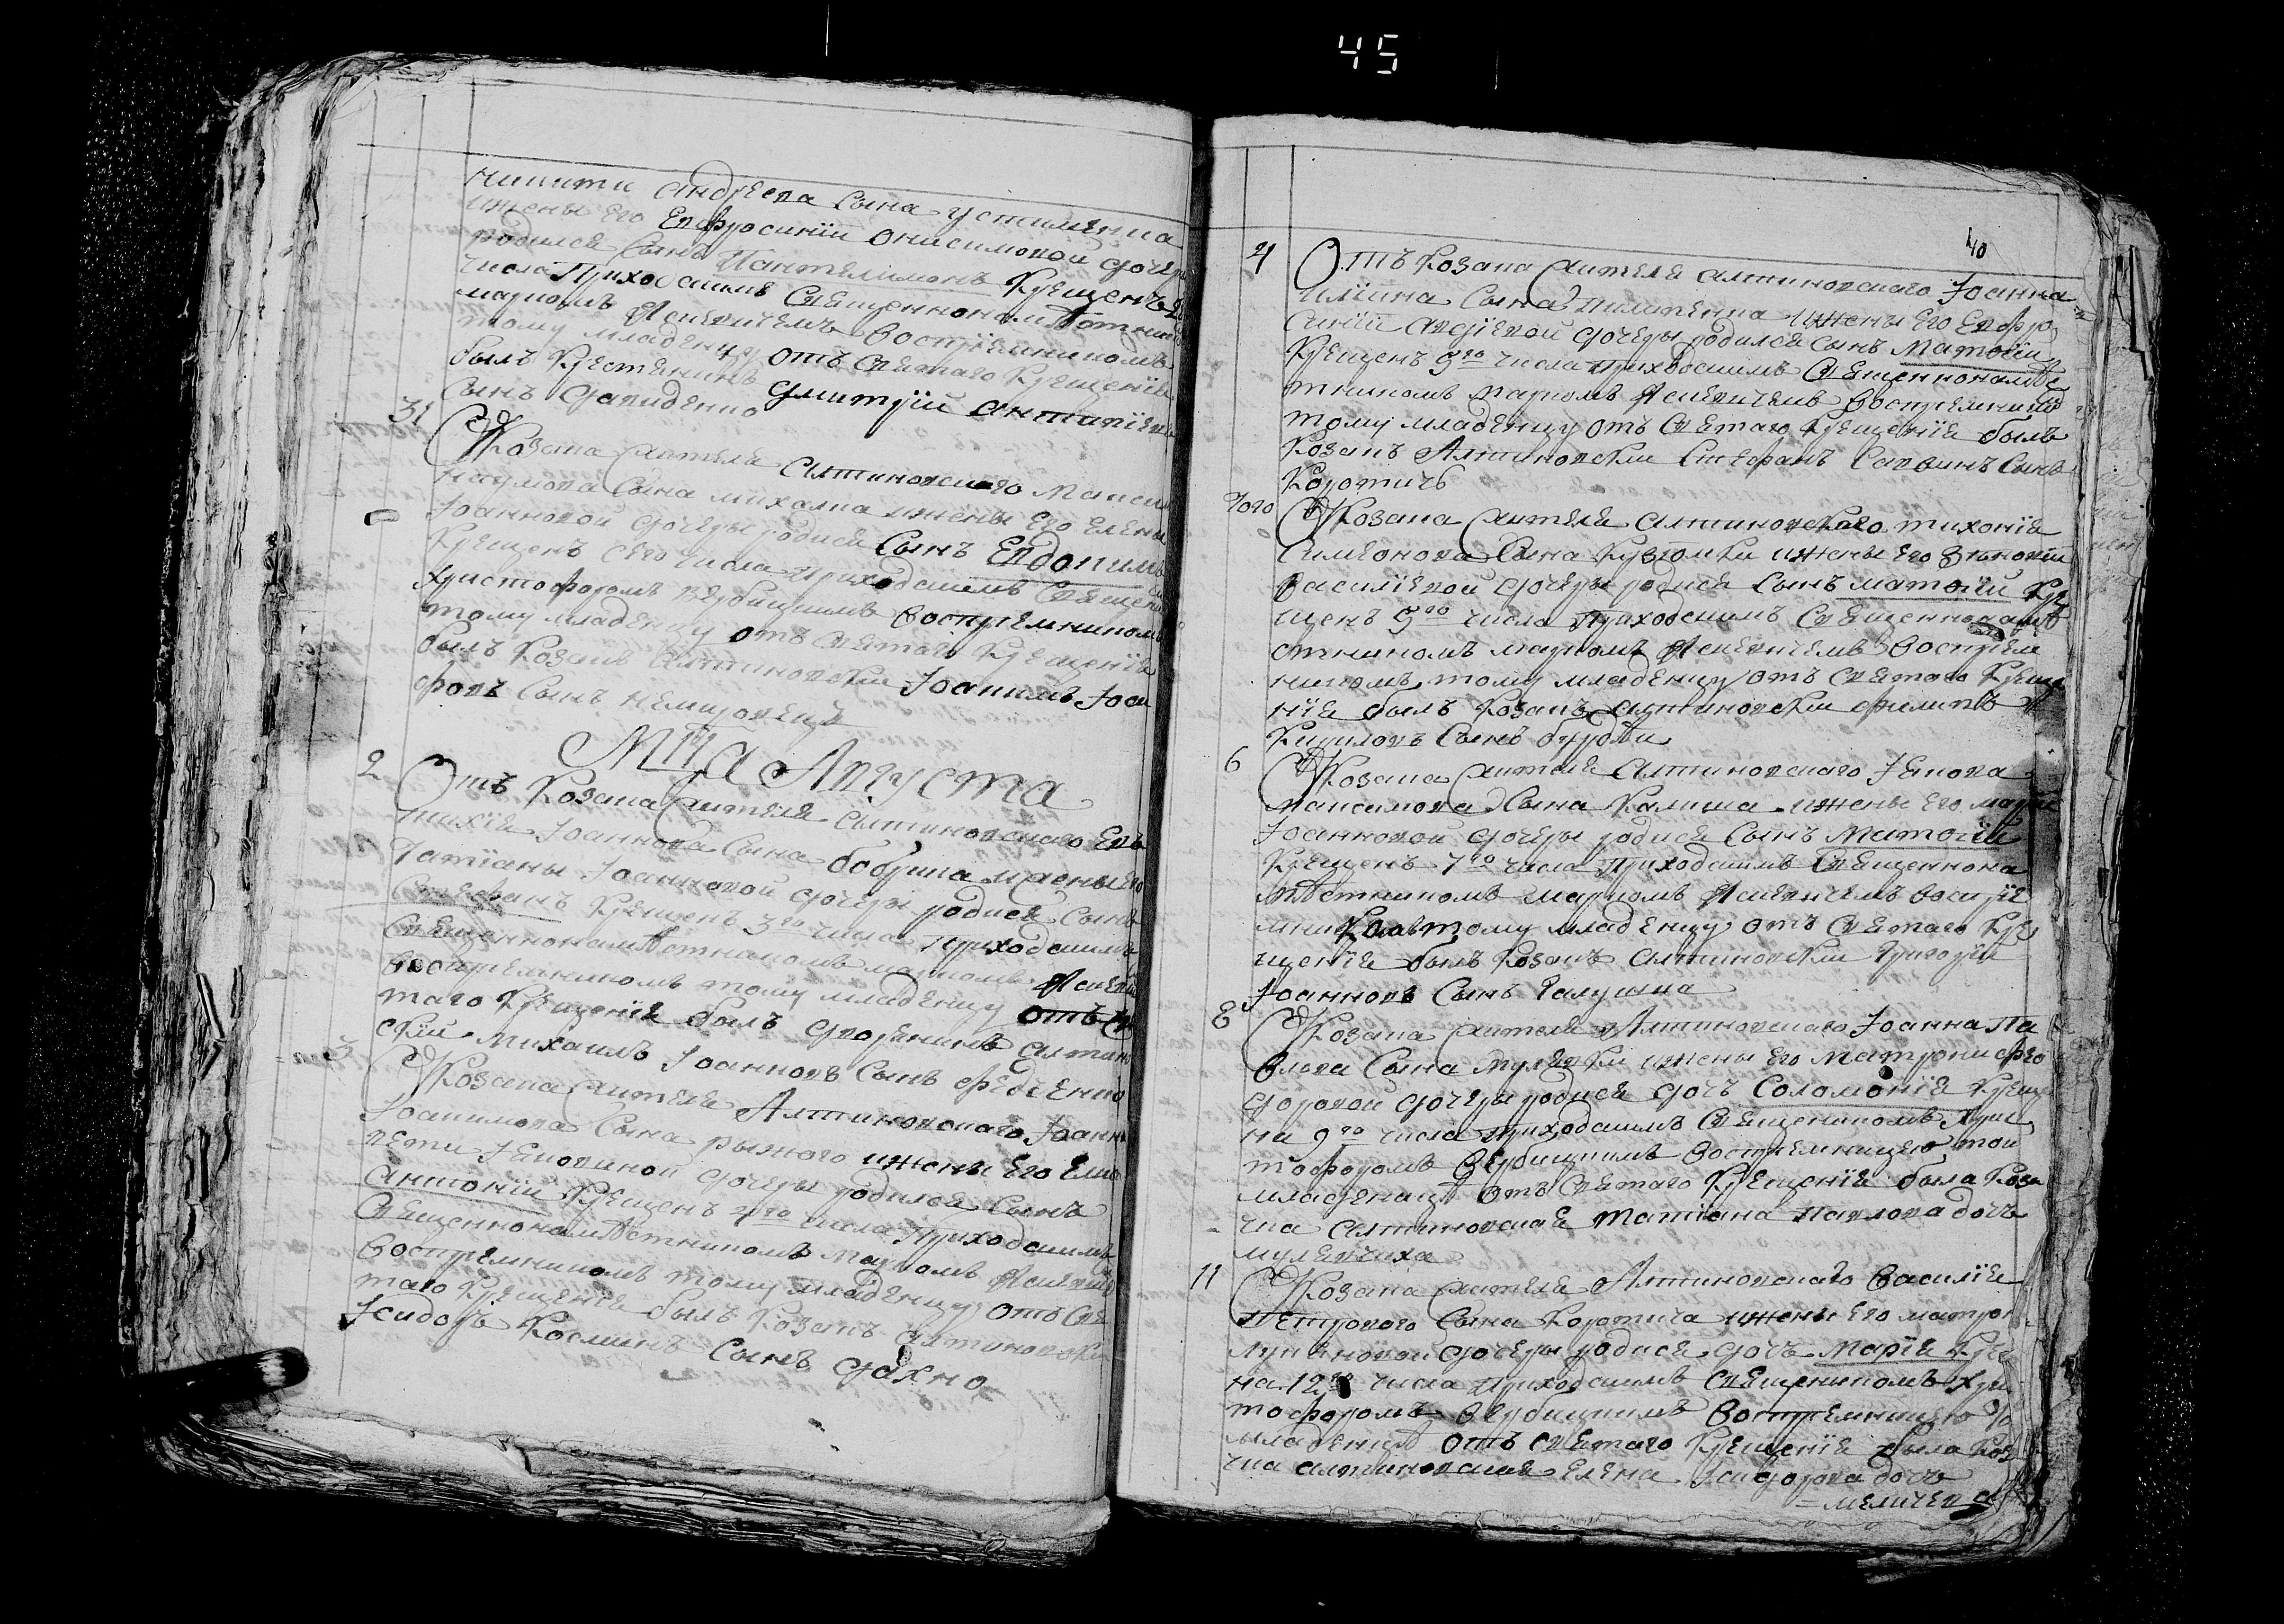 45
никити андреева сына устименка
ижены его Евфросинїи онисимовой дочери
родился сынъ Пантелимонъ Крещенъ
числа Приходскимъ Священнонамѣстни
маркомъ Яскевичемъ воспрїемникомъ
тому младенцу отъ святаго крещенїя
былъ крестянинъ Димитрїй антипїевъ
сынъ Давиденко
31 Козака жителя алтиновского Макси
наумова сына михалка ижены его елены
Іоанновой дочеры родися сынъ Евдокимъ
Крещенъ сего числа приходскимъ Священ
Христофоромъ вербицкимъ воспрїемникомъ
тому младенцу отъ святаго крещенїя
былъ козакъ алтиновскїи Іоакимъ Іоси
фовъ сынъ немировецъ
Мца Августа
2 Отъ козака жителя алтиновского Евъ
тихїя Іоаннова сына бобрика ижены его
Татїаны Іоанновой дочеры родися сынъ
Стефанъ Крещенъ 3го числа приходскимъ
Священнонамѣстникомъ маркомъ Яскеви
воспрїемникомъ тому младенцу отъ свя
таго крещенїя былъ дворянинъ алтинов
скїй михаилъ Іоанновъ сынъ федченко
3 Козака жителя Алтиновского Іоанна
Іоакимова сына рыжого ижены его елиса
вети Іяковиной дочеры родился сынъ
антонїи Крещенъ 4го числа Приходскимъ
Священнонамѣстникомъ маркомъ Яскевич
воспрїемникомъ тому младенцу отъ свя
таго крещенїя былъ козакъ алтиновски
Ісидоръ Косминъ сынъ дахно
40
4 Отъ козака жителя алтиновского Іоанна
илїина сына пилипенка ижены его евфро
синїи авдїевой дочеры родился сынъ матѳїй
Крещенъ 5го числа приходскимъ Священнонамѣс
тникомъ маркомъ Яскевичемъ воспрїемнико
тому младенцу отъ святаго крещенїя былъ
козакъ Алтиновскїи Стефанъ Саввинъ сынъ
Коротичъ
того Козака жителя алтиновского тихонїя
симеонова сына кузѣомки ижены его зѣновїи
василїевой дочеры родися сынъ матѳїй Кре
щенъ 5го числа Приходскимъ Священнонамѣ
стникомъ маркомъ Яскевичемъ воспрїем
никомъ тому младенцу отъ святаго креще
нїя былъ козакъ алтиновскїи филипъ
Кириловъ сынъ
6 Козака жителя алтиновского Іякова
максимова сына калиша ижены его марїи
Іоанновой дочеры родися сынъ Матѳїй
Крещенъ 7го числа Приходскимъ Священнона
мѣстникомъ маркомъ Яскевичемъ воспрїе
мникомъ тому младенцу отъ святаго кре
щенїя былъ козакъ алтиновскїи григорїй
Іоанновъ сынъ галушка
8 Козака жителя Алтиновского Іоанна Па
влова сына мулявки ижены его матрони фео
доровой дочеры родися дочъ Соломонїя Креще
на 9го числа приходскимъ Священникомъ Хрис
тофоромъ Вербицкимъ воспрїемницею той
младеницѣ отъ святаго крещенїя была коза
чка алтиновская татїана павлова дочъ
мулявчиха
11 Козака жителя Алтиновского василїя
петрового сына коротича ижены его матрон
лукїяновой дочеры родися дочъ Марїя Кре
на 12го числа приходскимъ Священникомъ Хри
тофоромъ вербицкимъ воспрїемницею то
младеницѣ отъ святаго крещенїя была коз
чка алтиновская Елена Ісидорова дочъ